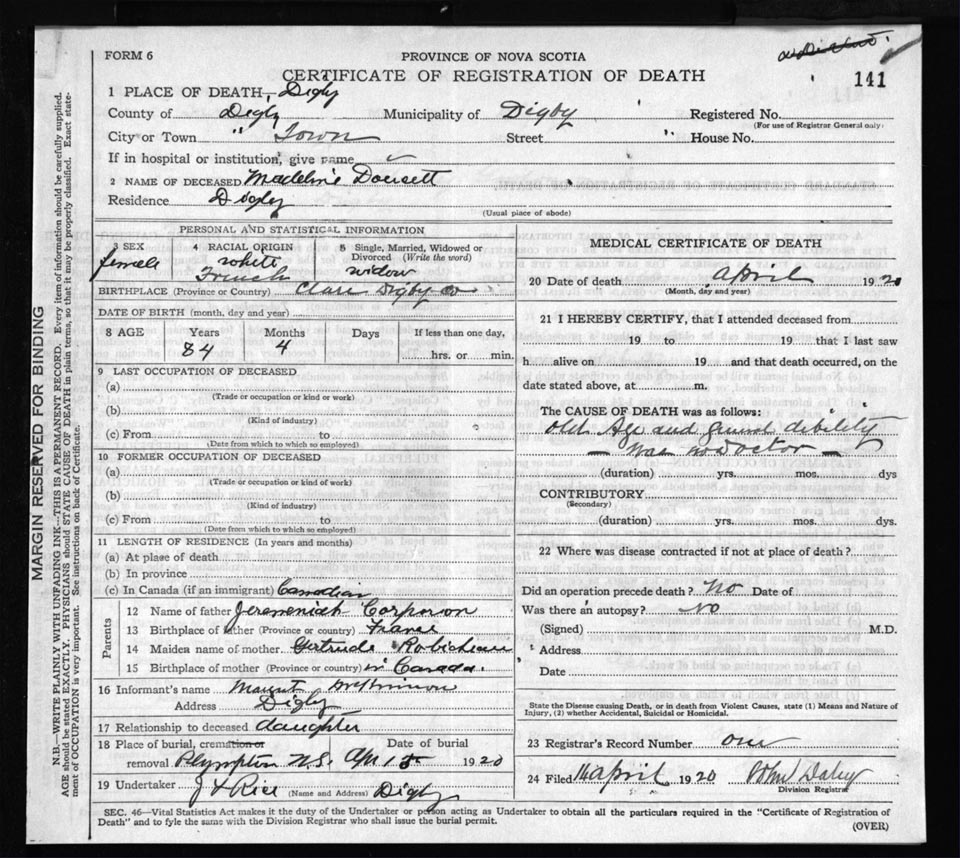 FORM 6
PROVINCE OF NOVA SCOTIA
CERTIFICATE OF REGISTRATION OF DEATH
141
1 PLACE OF DEATH, Digby
County of Digby Municipality of Digby Registered No.
(For use of Registrar General only)
City or Town " Town Street " House No.
If in hospital or institution, give name
2 NAME OF DECEASED Madeline Doucett
Residence Digby
(Usual place of abode)
PERSONAL AND STATISTICAL INFORMATION
3 SEX 4 RACIAL ORIGIN 5 Single, Married, Widowed or Divorced (Write the word)
female white French widow
BIRTHPLACE (Province or Country) Clare Digby Co
DATE OF BIRTH (month, day and year)
8 AGE Years Months Days If less than one day,
84 4 hrs. or min.
9 LAST OCCUPATION OF DECEASED
(a)
(Trade or occupation or kind of work)
(b)
(Kind of industry)
(c) From to
(Date from which to which so employed)
10 FORMER OCCUPATION OF DECEASED
(a)
(Trade or occupation or kind of work)
(b)
(Kind of industry)
(c) From to
(Date from which to which so employed)
11 LENGTH OF RESIDENCE (In years and months)
(a) At place of death
(b) In province
(c) In Canada (if an immigrant) Canadian
Parents
12 Name of father Jeremeniah Corporon
13 Birthplace of father (Province or country) France
14 Maiden name of mother Gertrude Robicheau
15 Birthplace of mother (Province or country) in Canada.
16 Informant's name
Address Digby
17 Relationship to deceased daughter
18 Place of burial, cremation or removal Plympton N.S. Date of burial Apr 15 1920
19 Undertaker J & Rice (Name and Address) Digby
MEDICAL CERTIFICATE OF DEATH
20 Date of death April 1920
(Month, day and year)
21 I HEREBY CERTIFY, that I attended deceased from
19 to 19 that I last saw
h alive on 19 and that death occurred, on the
date stated above, at m.
The CAUSE OF DEATH was as follows:
Old Age and general dibility
— Was no Doctor —
(duration) yrs. mos. dys
CONTRIBUTORY
(Secondary)
(duration) yrs. mos. dys.
22 Where was disease contracted if not at place of death?
Did an operation precede death? No Date of
Was there an autopsy? No
(Signed) M.D.
Address
Date
State the Disease causing Death, or in death from Violent Causes, state (1) Means and Nature of
Injury, (2) whether Accidental, Suicidal or Homicidal.
23 Registrar's Record Number one
24 Filed 14 April 1920 John Daley
Division Registrar
SEC. 46—Vital Statistics Act makes it the duty of the Undertaker or person acting as Undertaker to obtain all the particulars required in the "Certificate of Registration of
Death" and to fyle the same with the Division Registrar who shall issue the burial permit.
(OVER)
MARGIN RESERVED FOR BINDING
N.B.—WRITE PLAINLY WITH UNFADING INK—THIS IS A PERMANENT RECORD. Every item of information should be carefully supplied.
AGE should be stated EXACTLY. PHYSICIANS should STATE CAUSE OF DEATH in plain terms, so that it may be properly classified. Exact state-
ment of OCCUPATION is very important. See instructions on back of Certificate.